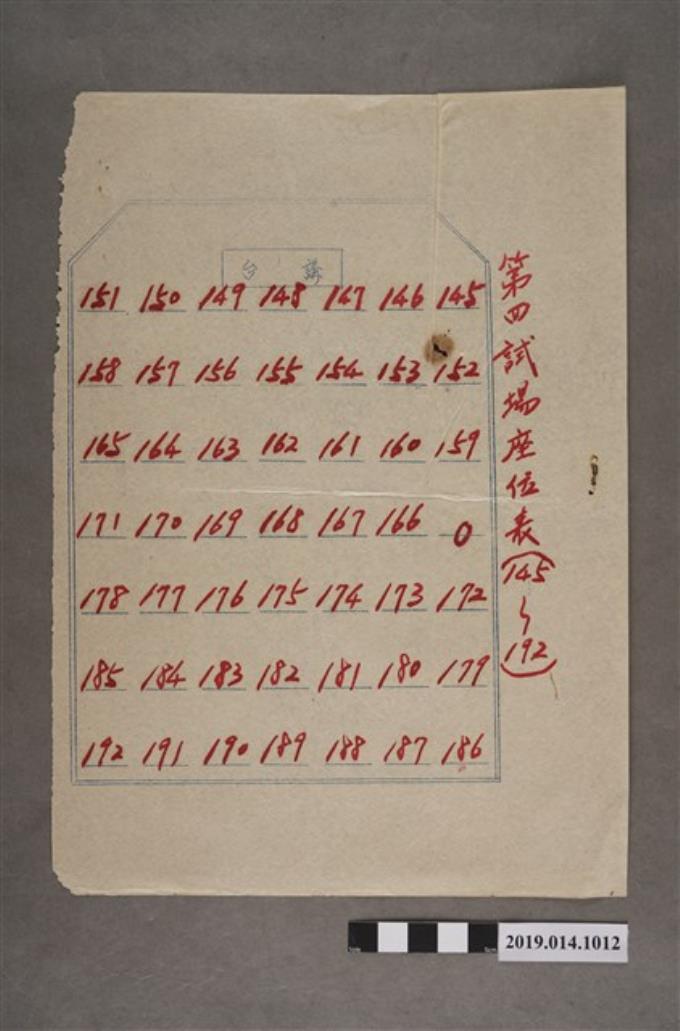 第四試場座位表(145~192)
講台
151 150 149 148 147 146 145
158 157 156 155 154 153 152
165 164 163 162 161 160 159
171 170 169 168 167 166 0
178 177 176 175 174 173 172
185 184 183 182 181 180 179
192 191 190 189 188 187 186
2019.014.1012